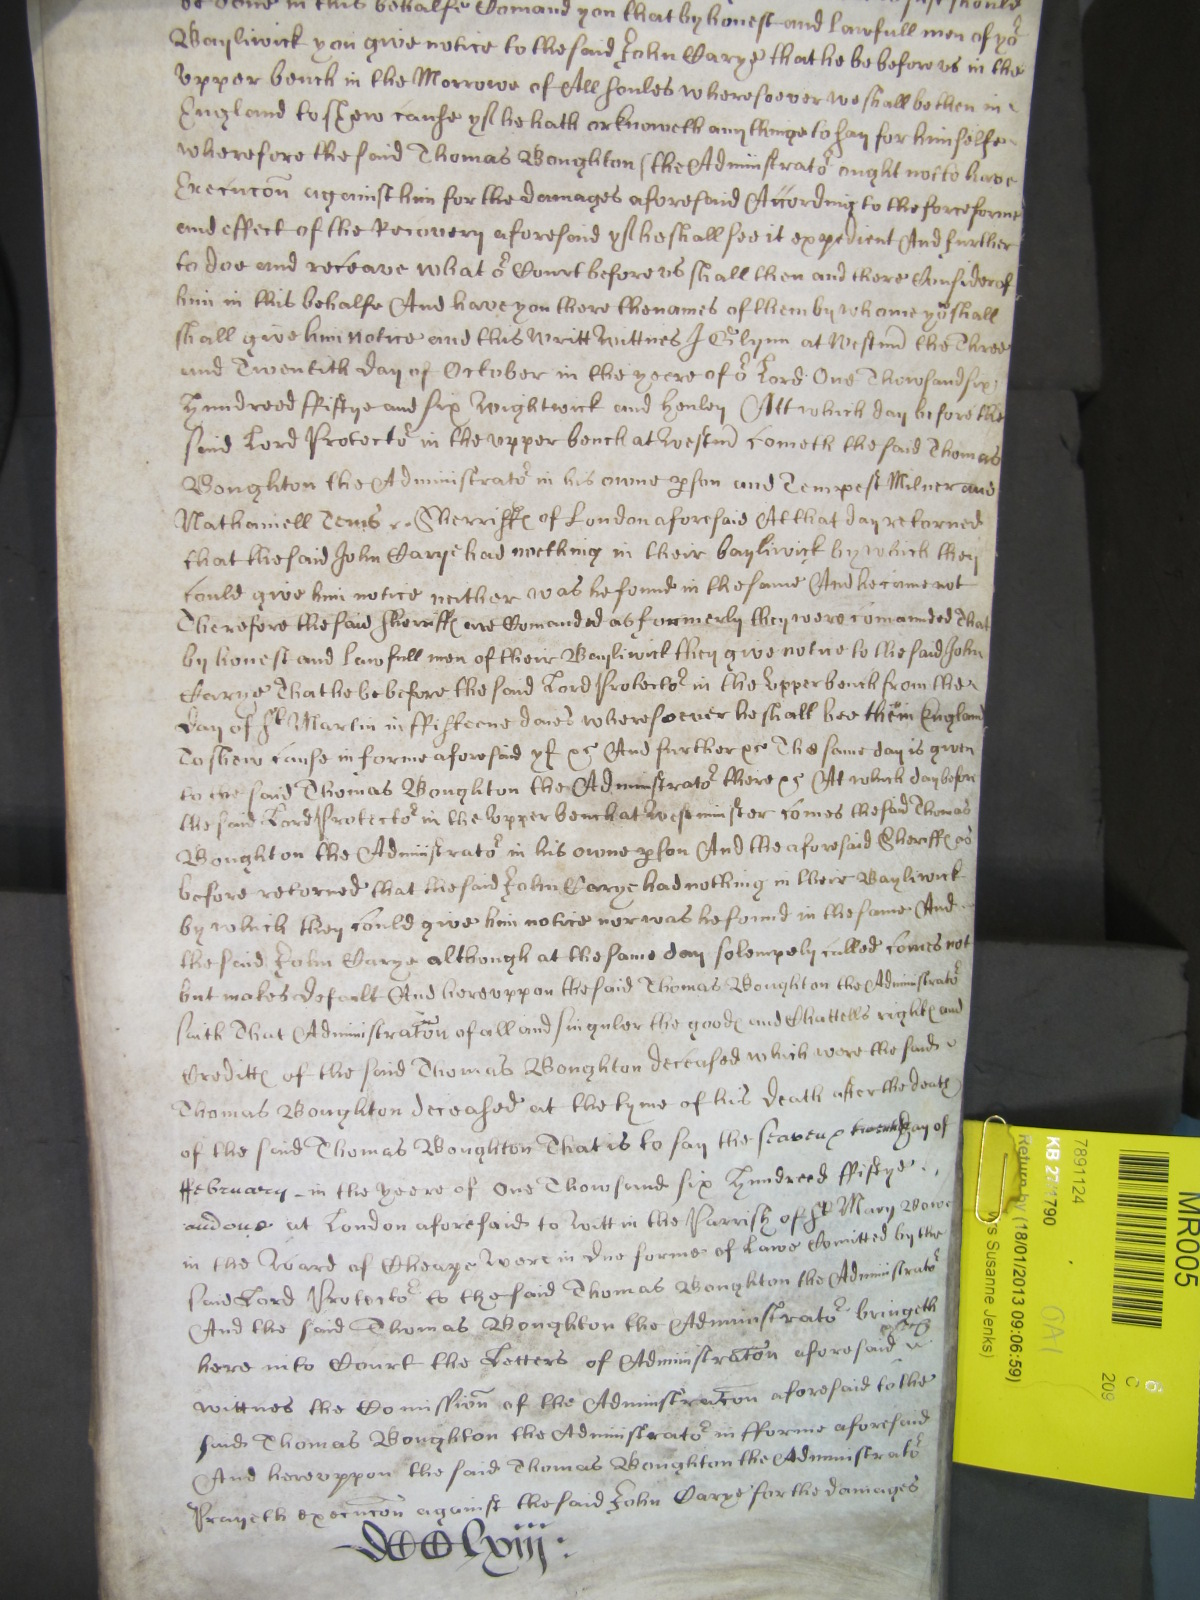 be done in this behalfe Comand you that by honest and lawfull men of yor
Bayliwick you give notice to the said John Carye that he be before us in the
upper bench in the Morrowe of All soules wheresoever we shall be then in
England to shew cause yf he hath or knoweth any thinge to say for himselfe
wherefore the said Thomas Boughton the Administrator ought not to have
Execucon against him for the damages aforesaid According to the force forme
and effect of the Recovery aforesaid yf he shall see it expedient And further
to doe and receave what or Court before us shall then and there Consider of
him in this behalfe And have you there the names of them by whome you shall
shall give him notice and this writt Wittnes J Glynn at Westmr the Three
and Twentith day of October in the yeere of or Lord One Thowsand six
Hundreed ffiftye and six Wightwick and Henley Att which day before the
said Lord Protector in the upper bench at Westmr cometh the said Thomas
Boughton the Administrator in his owne pson and Tempest Milner and
Nathaniell Tems Sherriffs of London aforesaid At that day retorned
that the said John Carye had noething in their bayliwick by which they
could give him notice neither was he found in the same And he came not
Therefore the said sherriffs are Comanded as formerly they were comannded That
by honest and lawfull men of their Bayliwick they give notice to the said John
Carrye That he be before the said Lord Protector in the Upper bench from the
Day of St Martin in ffifteene daies wheresoever he shall bee then in England
To shew cause in forme aforesaid yf &c And further &c The same day is given
to the said Thomas Boughton the Administrator there &c At which day before
the said Lord Protector in the Upper bench at Westminster comes the said Thomas
Boughton the Administrator in his owne pson And the aforesaid Sheriffs as
before retorned that the said John Carye had nothing in their Bayliwick
by which they could give him notice nor was he found in the same And
the said John Carye although at the same day solempnly called comes not
but makes default And hereuppon the said Thomas Boughton the Administrator
saith That Administration of all and singuler the goods and Chattells rights and
Creditts of the said Thomas Boughton deceased which were the said
Thomas Boughton deceased at the tyme of his Death after the death
of the said Thomas Boughton That is to say the seaven & twentith day of
ffebruary in the yeere of One Thowsand six Hundreed ffiftye
and one at London aforesaid to witt in the Parrish of St Mary Bowe
in the Ward of Cheape were in due forme of Lawe Comitted by the
said Lord Protector to the said Thomas Boughton the Administrator
And the said Thomas Boughton the Administrator bringeth
here into Court the Letters of Administration aforesaid
wittnes the Comission of the Administracon aforesaid to the
said Thomas Boughton the Administrator in fforme aforesaid
And hereuppon the said Thomas Boughton the Administrator
Prayeth execucon against the said John Carye for the damages
MR005
209
7891124
KB 27/1790
Return by (18/01/2013 09:06:59)
Ms Susanne Jenks)